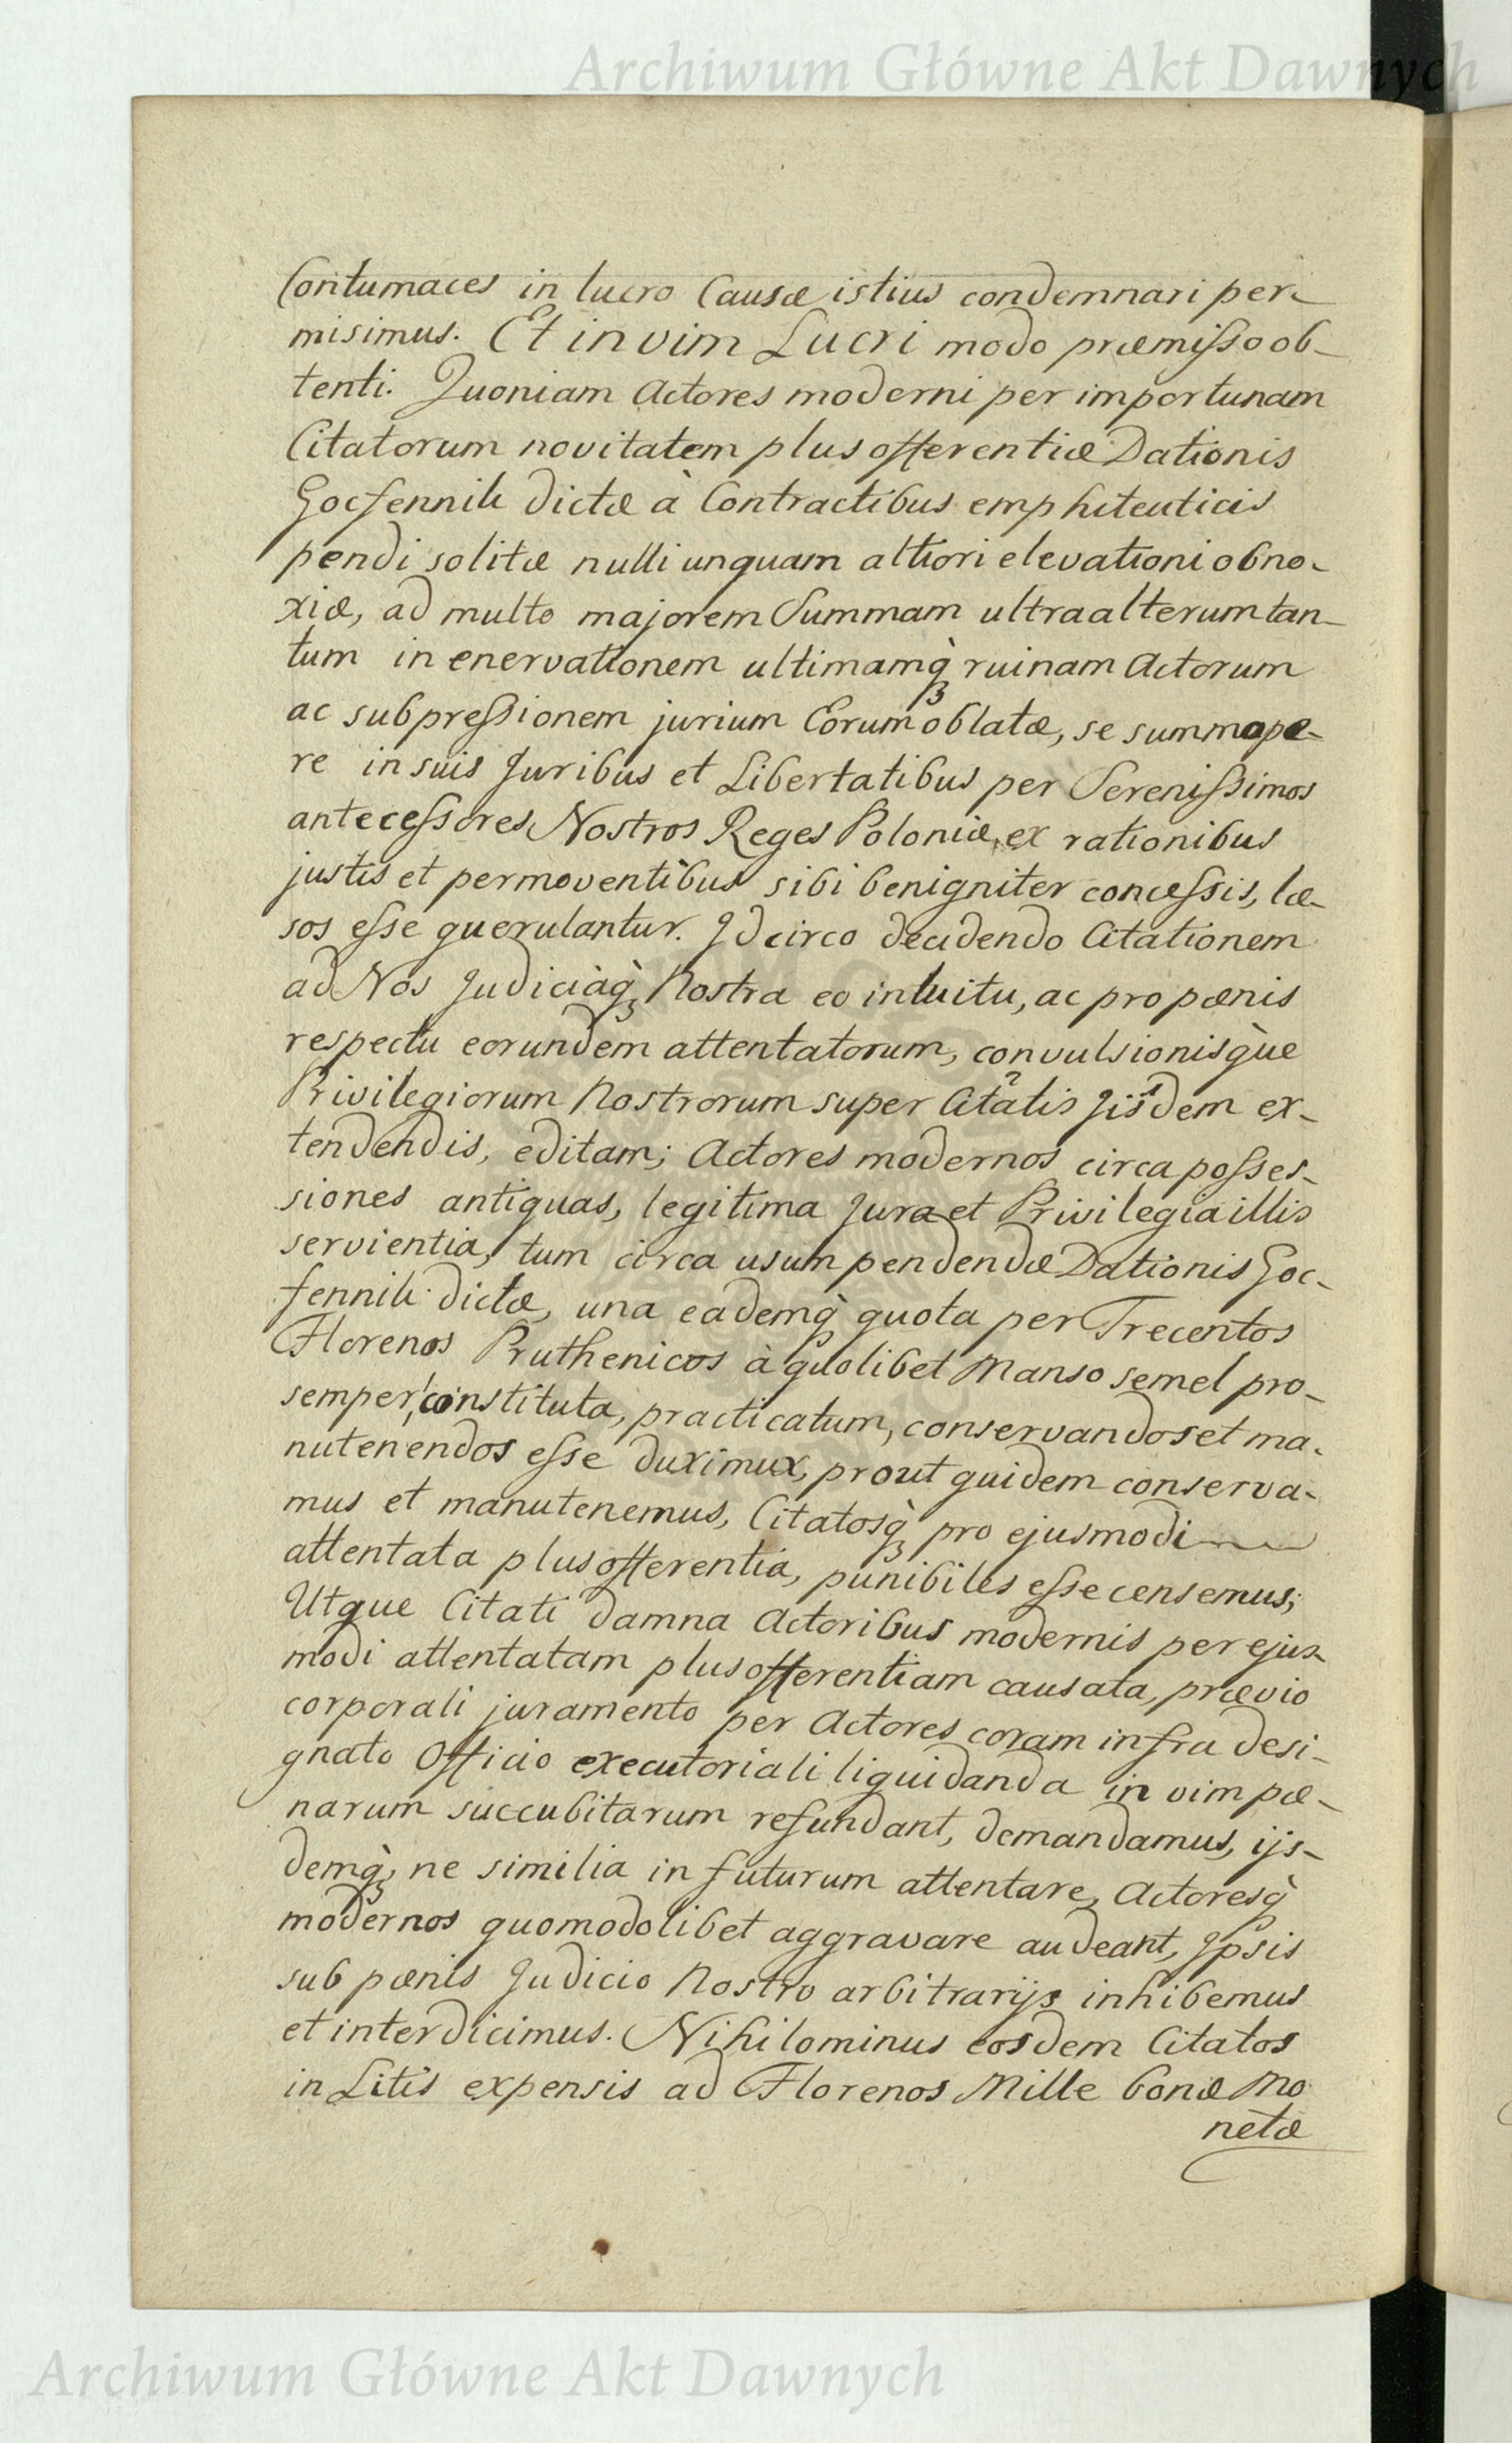 Archiwum Główne Akt Dawnych
Contumaces in lucro Causæ istius condemnari per-
misimus. Et in vim Lucri modo præmisso ob-
tenti. Quoniam Actores moderni per importunam
Citatorum novitatem plus offerentiæ Dationis
Gocfennik dictæ à Contractibus emphiteuticis
pendi solitæ nulli unquam altiori elevationi obno-
xiæ, ad multo majorem Summam ultra alterum tan-
tum in enervationem ultimamq̀ ruinam Actorum
ac subpressionem jurium Eorum oblatæ, se summope-
re in suis Juribus et Libertatibus per Serenissimos
antecessores Nostros Reges Poloniæ, ex rationibus
justis et permoventibus sibi benigniter concessis, læ-
sos esse querulantur. Idcirco decidendo Citationem
ad Nos Judiciàq̀ Nostra eo intuitu, ac pro pænis
respectu eorundem attentatorum, convulsionisq̀ue
Privilegiorum Nostrorum super Citatis Iisdem ex-
tendendis, editam; Actores modernos circa posses-
siones antiquas, legitima Jura et Privilegia illis
servientia, tum circa usum pendendæ Dationis Goc-
fennik dictæ, una eademq̀ quota per Trecentos
Florenos Pruthenicos à quolibet Manso semel pro-
semper constituta, practicatum, conservandos et ma-
nutenendos esse duximux, prout quidem conserva-
mus et manutenemus, Citatosq̀ pro ejusmodi
attentata plus offerentia, punibiles esse censemus;
Utque Citati damna Actoribus modernis per ejus-
modi attentatam plus offerentiam causata, prævio
corporali juramento per Actores coram infra desi-
gnato Officio executoriali liquidanda in vim pæ-
narum succubitarum refundant, demandamus, ijs-
demq̀, ne similia in futurum attentare, Actoresq̀
modernos quomodolibet aggravare audeant, Ipsis
sub pænis Judicio Nostro arbitrarijs inhibemus
et interdicimus. Nihilominus eosdem Citatos
in Litis expensis ad Florenos Mille bonæ Mo
netæ
Archiwum Główne Akt Dawnych